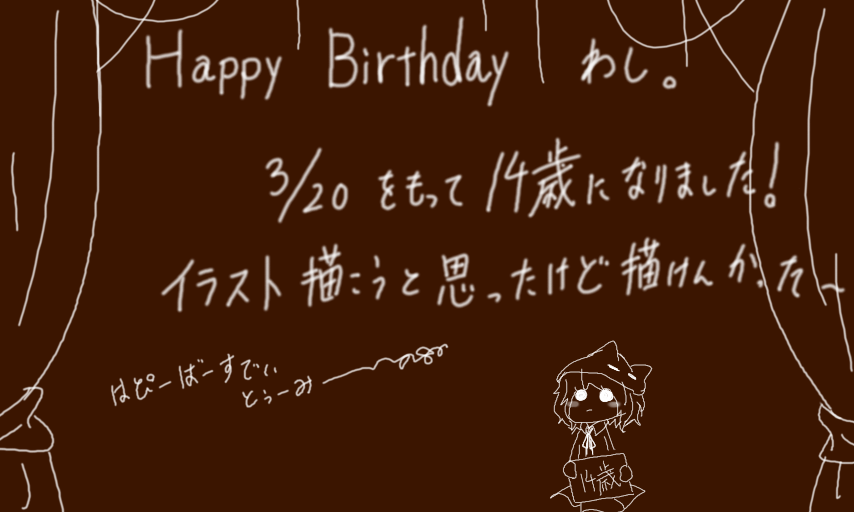 Happy Birthday わし。
3/20 をもって 14歳になりました!
イラスト描こうと思ったけど描けんかった~
はぴーばーすでい
とぅーみー
14歳